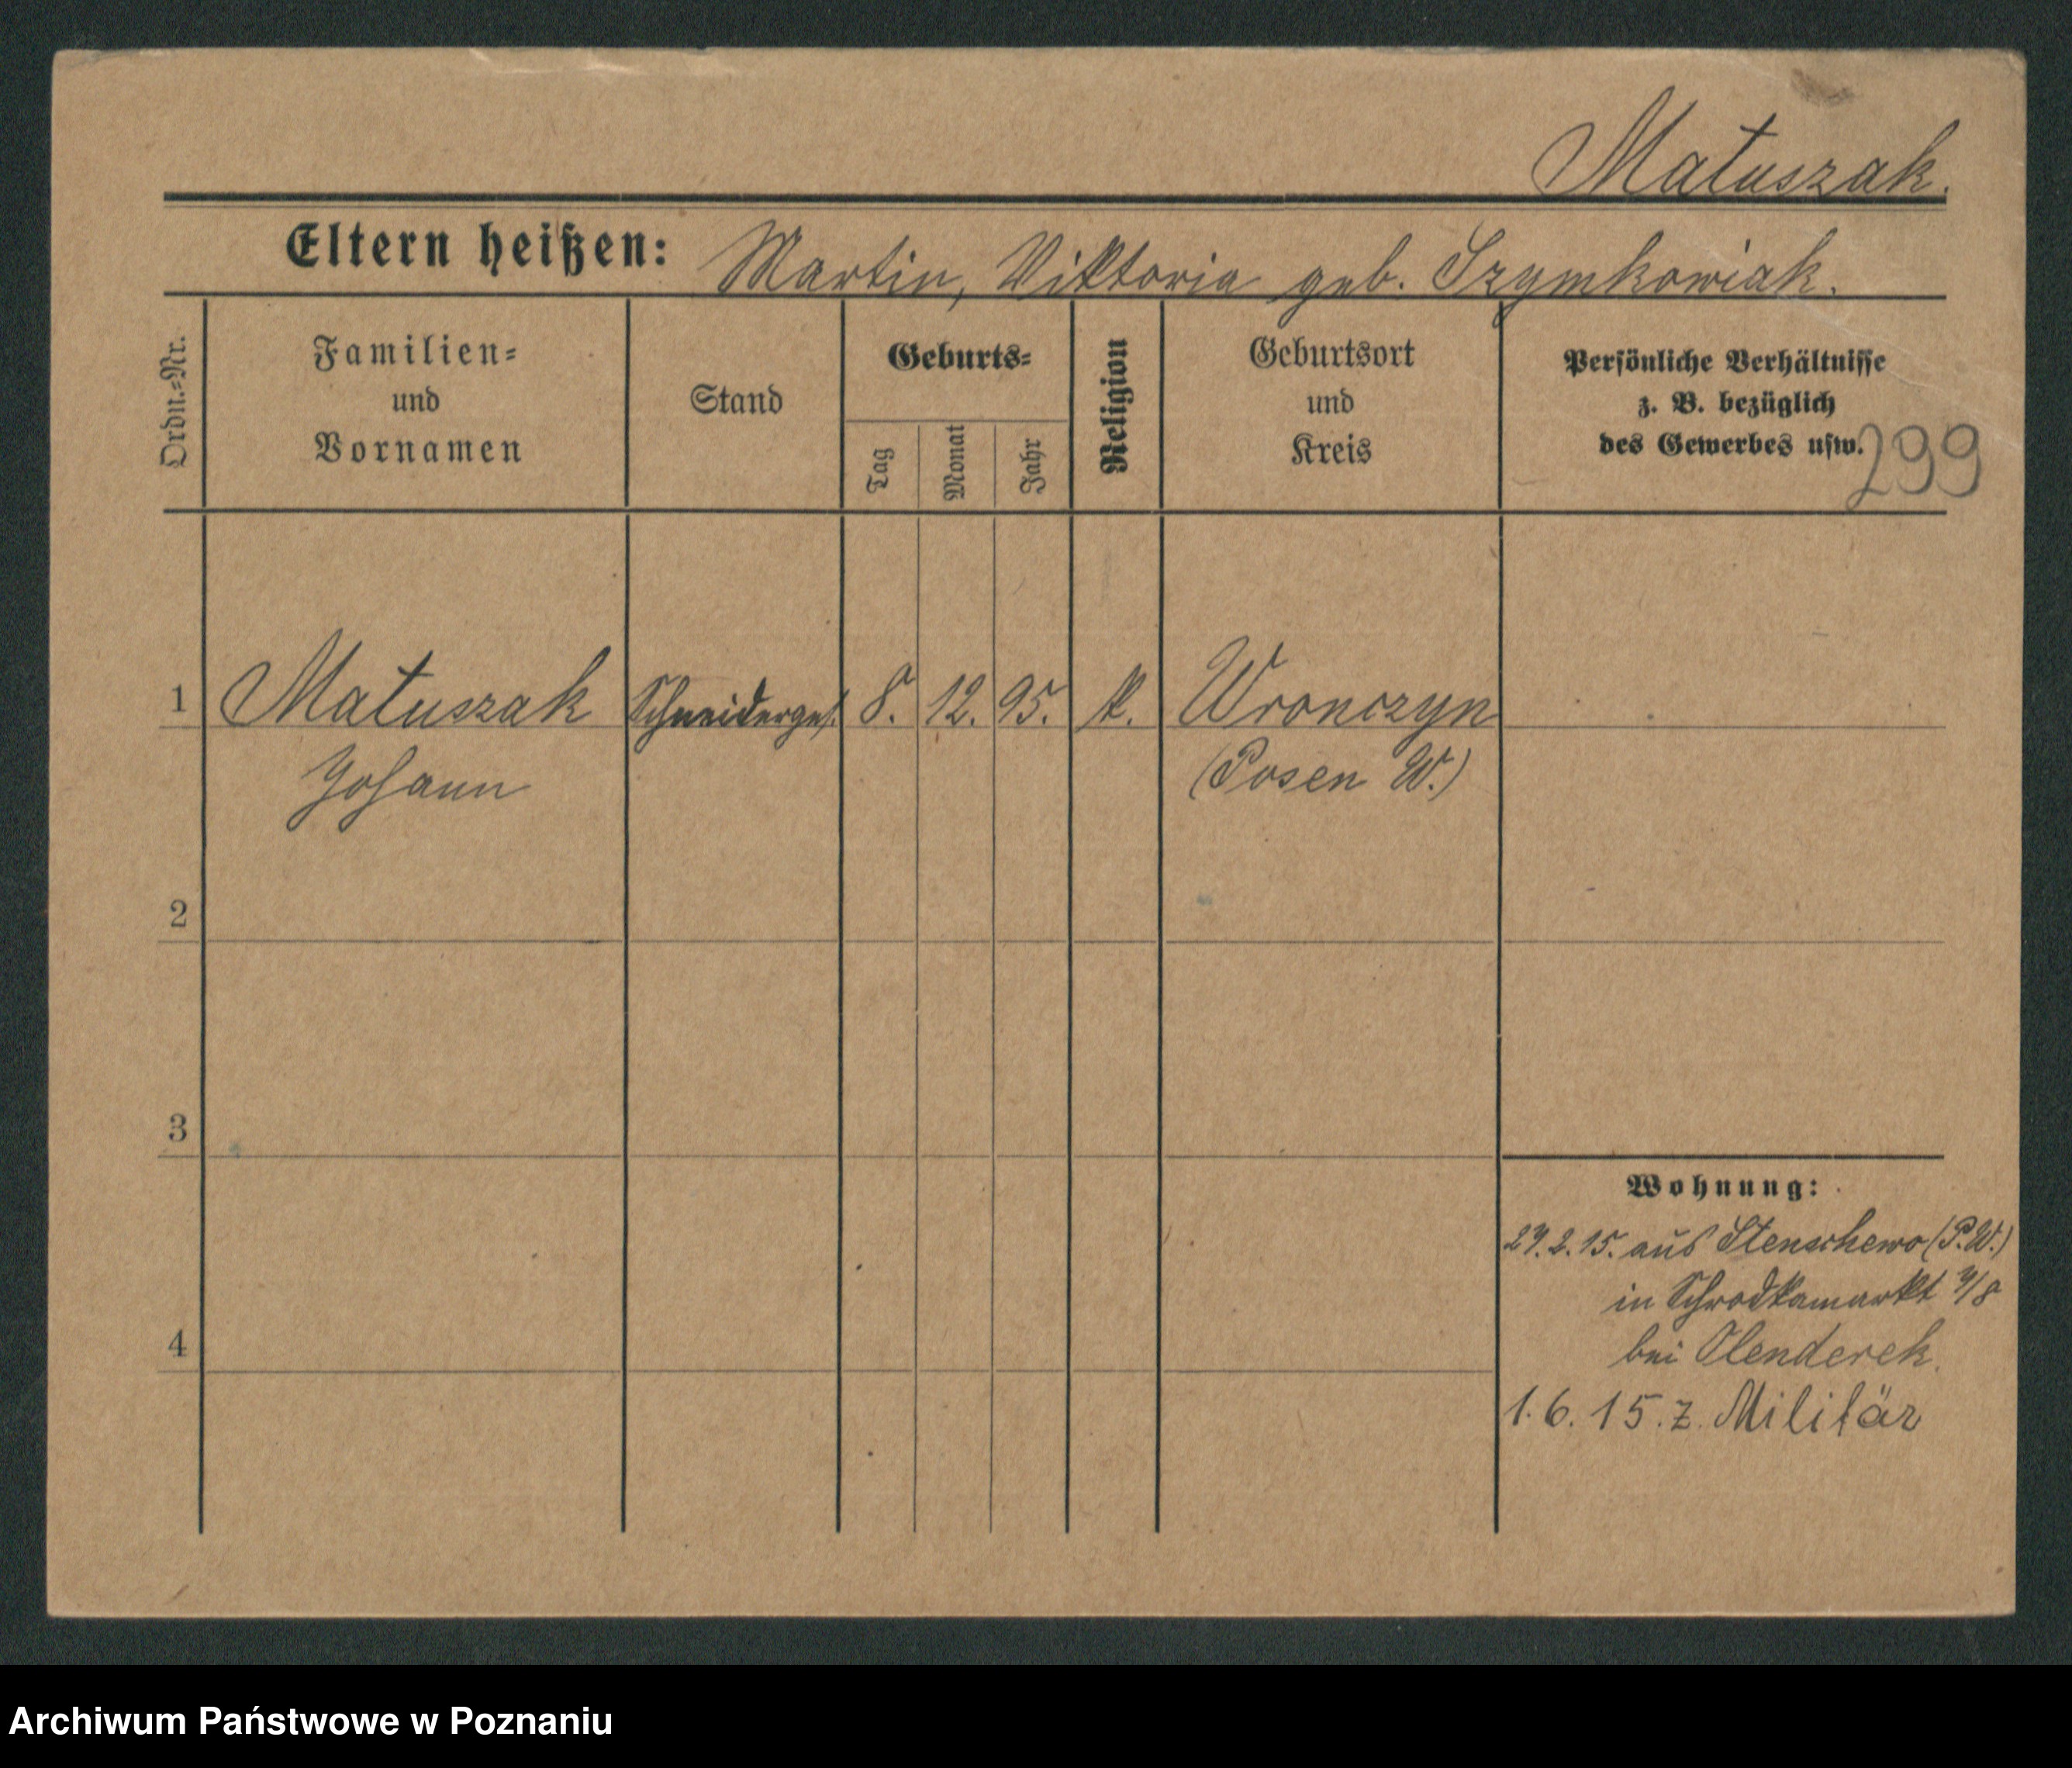 Matuszak.
Eltern heißen: Martin, Viktoria geb. Szymkowiak.
Ordn.=Nr.
Familien=
und
Vornamen
Stand
Geburts=
Tag
Monat
Jahr
Religion
Geburtsort
und
Kreis
Persönliche Verhältnisse
z. B. bezüglich
des Gewerbes usw.
299
1 Matuszak Schneiderges. 8. 12. 95. k. Wronczyn
Johann (Posen W.)
2
3
4
Wohnung:
27.2.15. aus Stenschewo (P.W.)
in Schrodkamarkt 7/8
bei Olenderek.
1.6.15. z. Militär
Archiwum Państwowe w Poznaniu